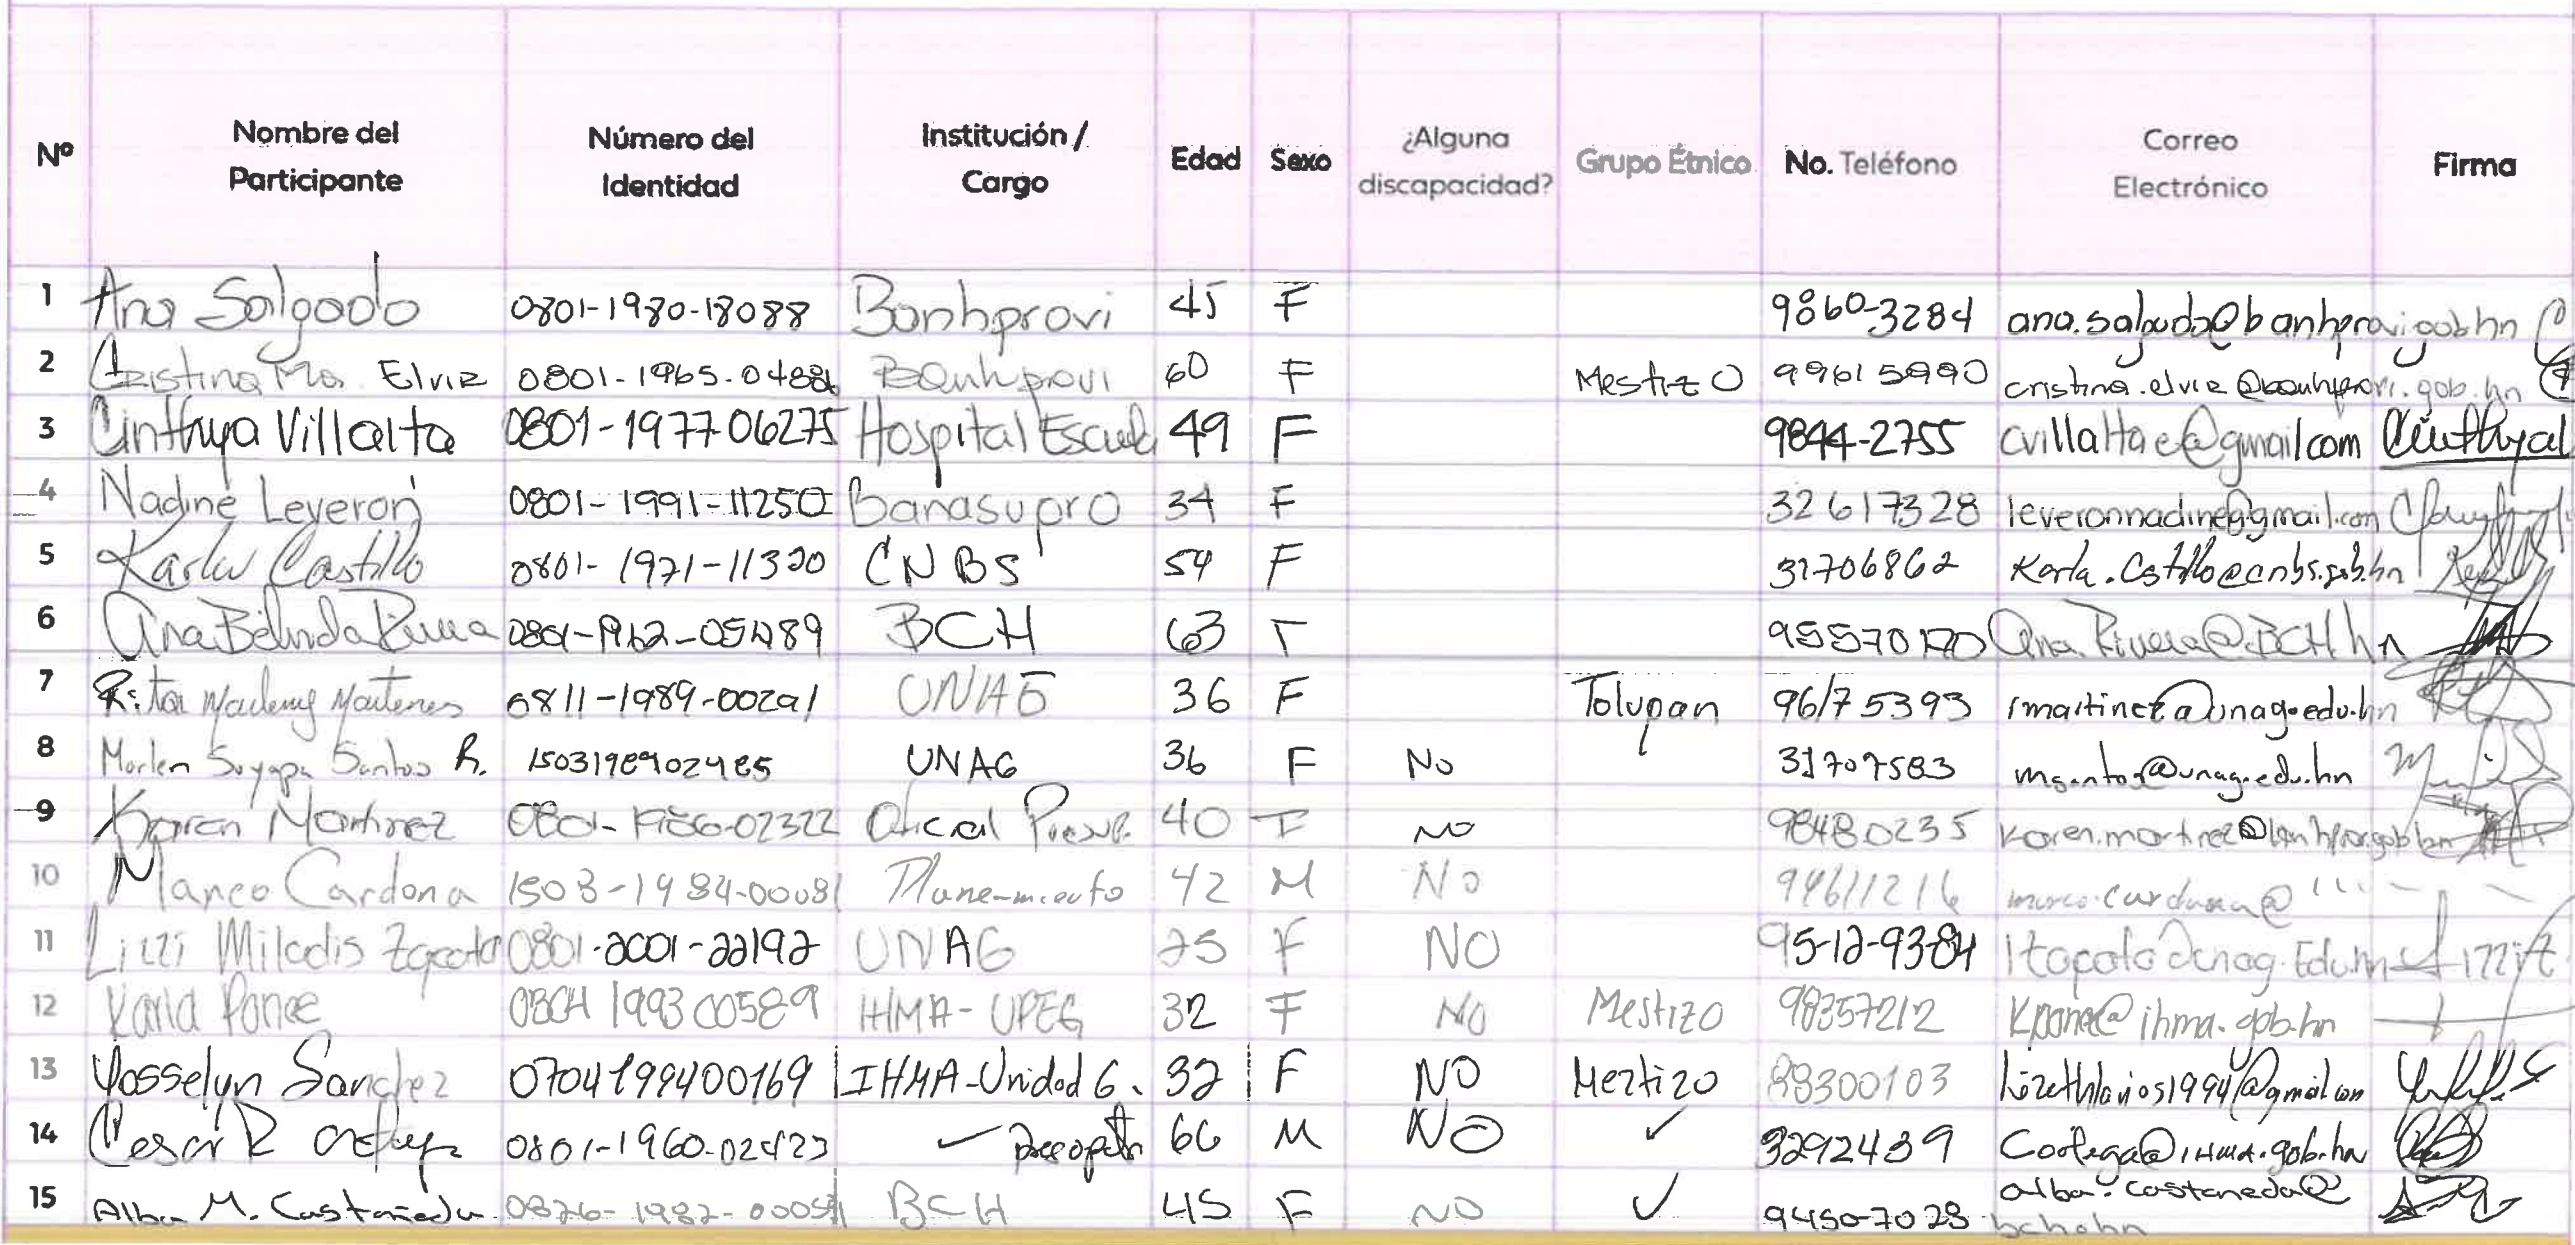 Nº Nombre del Participante Número del Identidad Institución / Cargo Edad Sexo ¿Alguna discapacidad? Grupo Étnico No. Teléfono Correo Electrónico Firma
1 Ana Salgado 0801-1980-18088 Banhprovi 45 F 9860-3284 ana.salgado@banhprovi.gob.hn
2 Cristina Ma. Elvir 0801-1965-0488 Banhprovi 60 F Mestizo 99615990 cristina.elvir@banhprovi.gob.hn
3 Cinthya Villalta 0801-1977 06275 Hospital Escuela 49 F 9844-2755 cvillaltae@gmail.com Cinthya
4 Nadine Leveron 0801-1991-11250 Banasupro 34 F 32617328 leveronnadine@gmail.com
5 Karla Castillo 0801-1971-11320 CNBS 54 F 31706862 Karla.Cstillo@cnbs.gob.hn
6 Ana Belinda Rivera BCH 63 F 95570170 Ana Rivera@BCH hn
7 Rita 0811-1989-00291 UNAG 36 F Tolupan 96175393 rmartinez@unag.edu.hn
8 Marlen Suyapa Santos R. 1503198902485 UNAG 36 F No 31707583 msantos@unag.edu.hn
9 Karen Martinez 0801-1986-02322 Oficial Presup. 40 F No 98480235 karen.martinez@
10 Marco Cardona 1503-1984-00081 Planeamiento 42 M No 94611216 marco.cardona@
11 Lizzi Miladis Zapata 0801-2001-22192 UNAG 25 F NO 95-12-9384
12 Karla Ponce 1993 00589 IHMA-UPEG 32 F NO Mestizo 98357212 Kponce@ihma.gob.hn
13 Yosselyn Sanchez 0704199400169 IHMA-Unidad G. 32 F NO Meztizo 88300103 lizethlarios1994@gmail.com
14 Cesar R 0801-1960-02423 ✓ 66 M NO ✓ 3292439 Cortega@IHMA.gob.hn
15 Alba M. Castañeda BCH 45 F NO ✓ 9450-7028 alba.castaneda@
bch.hn